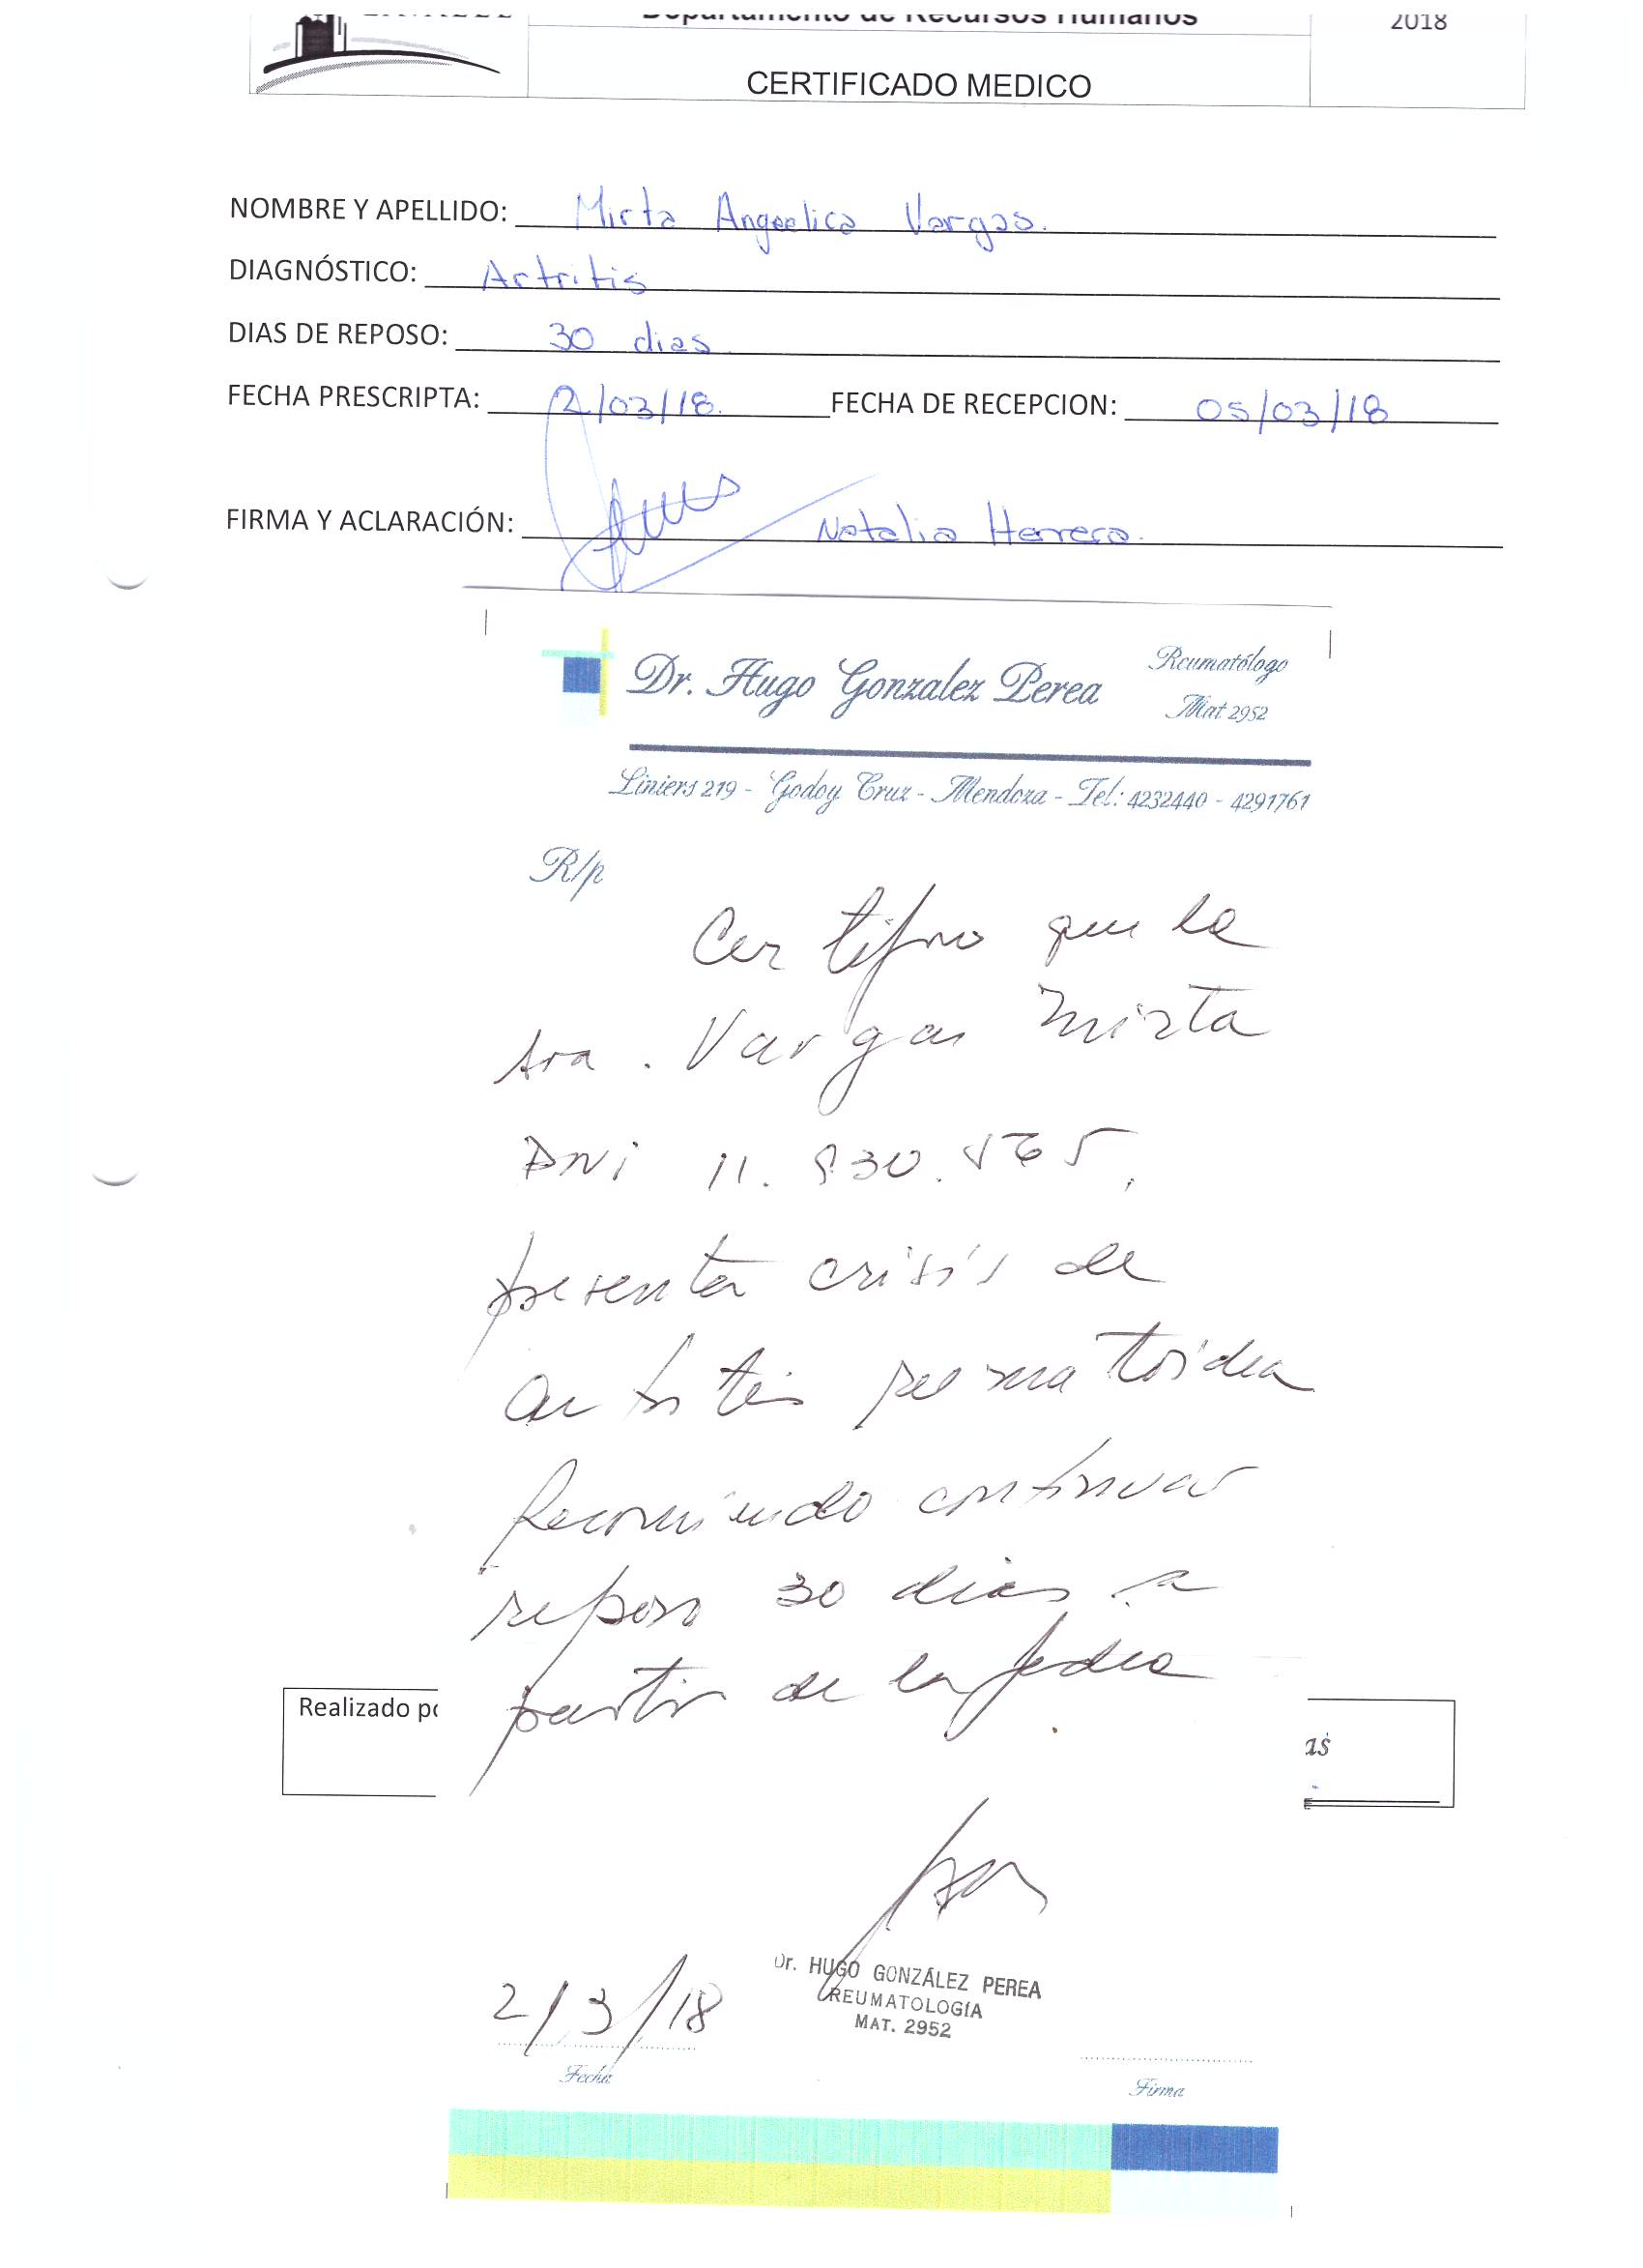 Departamento de Recursos Humanos
2018
CERTIFICADO MEDICO
NOMBRE Y APELLIDO: Mirta Angelica Vargas.
DIAGNÓSTICO: Artritis
DIAS DE REPOSO: 30 dias
FECHA PRESCRIPTA: 2/03/18. FECHA DE RECEPCION: 05/03/18
FIRMA Y ACLARACIÓN: Natalia Herrera.
Dr. Hugo Gonzalez Perea
Reumatólogo
Mat 2952
Liniers 219 - Godoy Cruz - Mendoza - Tel: 4232440 - 4291761
R/p
Certifico que la
sra. Vargas Mirta
DNI 11.
presenta crisis de
artritis reumatoidea
Recomiendo continuar
reposo 30 dias a
partir de la fecha
Realizado po
as
Dr. HUGO GONZÁLEZ PEREA
REUMATOLOGÍA
MAT. 2952
2/3/18
Fecha
Firma